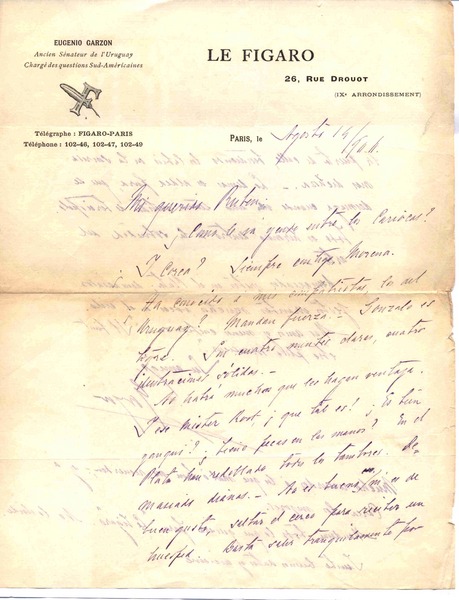 EUGENIO GARZON
Ancien Sénateur de l'Uruguay
Chargé des questions Sud-Américaines
LE FIGARO
26, RUE DROUOT
(IXe ARRONDISSEMENT)
Télégraphe : FIGARO-PARIS
Téléphone : 102-46, 102-47, 102-49
PARIS, le Agosto 14/906.
Mi querido Ruben,
¿Como le va yendo entre los Cariocas?
¿Y Corea? Siempre contigo Morena.
Ha conocido a mis compatriotas, los del
Uruguay? Mandan fuerza. Gonzalo es
tigre. Son cuatro mentes claras, cuatro
ilustraciones sólidas.-
No habrá muchos que les hagan ventaja.
Y ese mister Root, ¡que tal es! ¿Es buen
¿Tiene pecas en las manos? En el
Plata han redoblado todos los tambores. De-
masiadas dianas.- No es bueno, ni es de
buen gusto, saltar el cerco para recibir un
huesped. Basta salir tranquilamente por